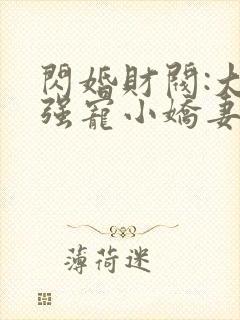 閃婚財閥:大
强寵小嬌妻
薄荷迷